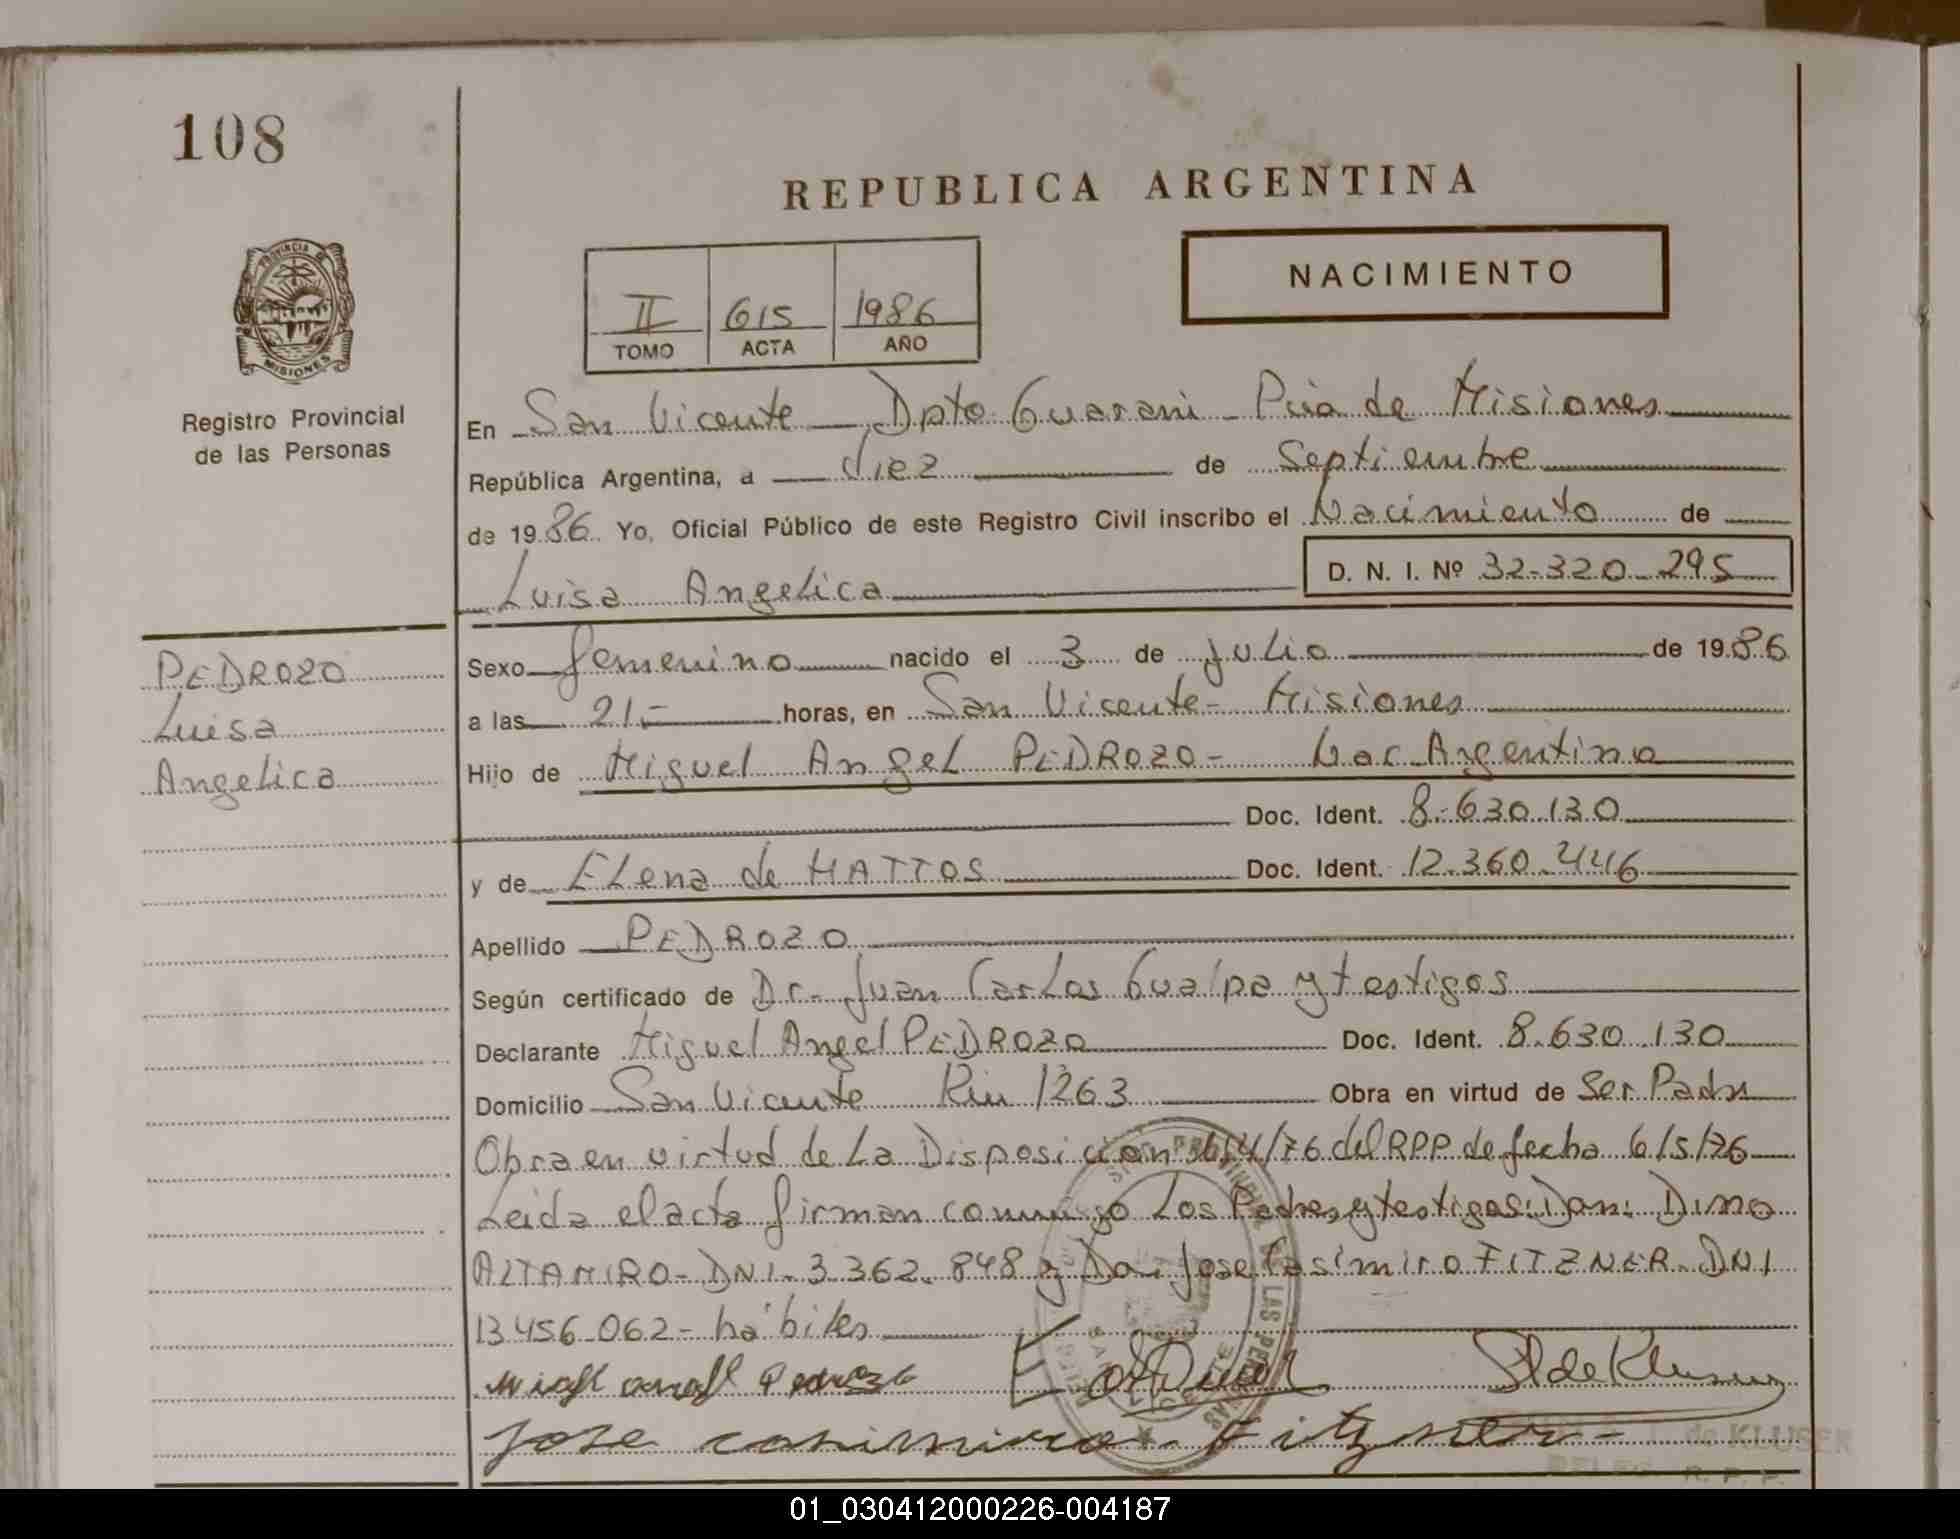 108
REPUBLICA ARGENTINA
PROVINCIA
MISIONES
II 615 1986
TOMO ACTA AÑO
NACIMIENTO
Registro Provincial
de las Personas
En San Vicente Dpto Guarani Pcia de Misiones
República Argentina, a diez de Septiembre
de 1986 Yo, Oficial Público de este Registro Civil inscribo el Nacimiento de
Luisa Angelica D. N. I. Nº 32-320-295
PEDROZO
Luisa
Angelica
Sexo femenino nacido el 3 de Julio de 1986
a las 21.- horas, en San Vicente - Misiones
Hijo de Miguel Angel PEDROZO - Nac. Argentina
Doc. Ident. 8.630.130
y de ELena de MATTOS Doc. Ident. 12.360.446
Apellido PEDROZO
Según certificado de Dr. Juan Carlos Gualpa y testigos
Declarante Miguel Angel PEDROZO Doc. Ident. 8.630.130
Domicilio San Vicente 1263 Obra en virtud de Ser Padre
Obra en virtud de La Disposicion 164/76 del RPP de fecha 6/5/76
Leida el acta firman conmigo Los Padres y testigos: Don: Dino
ALTAMIRO - DNI. 3.362.848 y Don Jose Casimiro FITZNER. DNI
13.456.062 - hábiles
Pedrozo
Jose Casimiro Fitzner
de KLUSER
R. P. P.
01_030412000226-004187